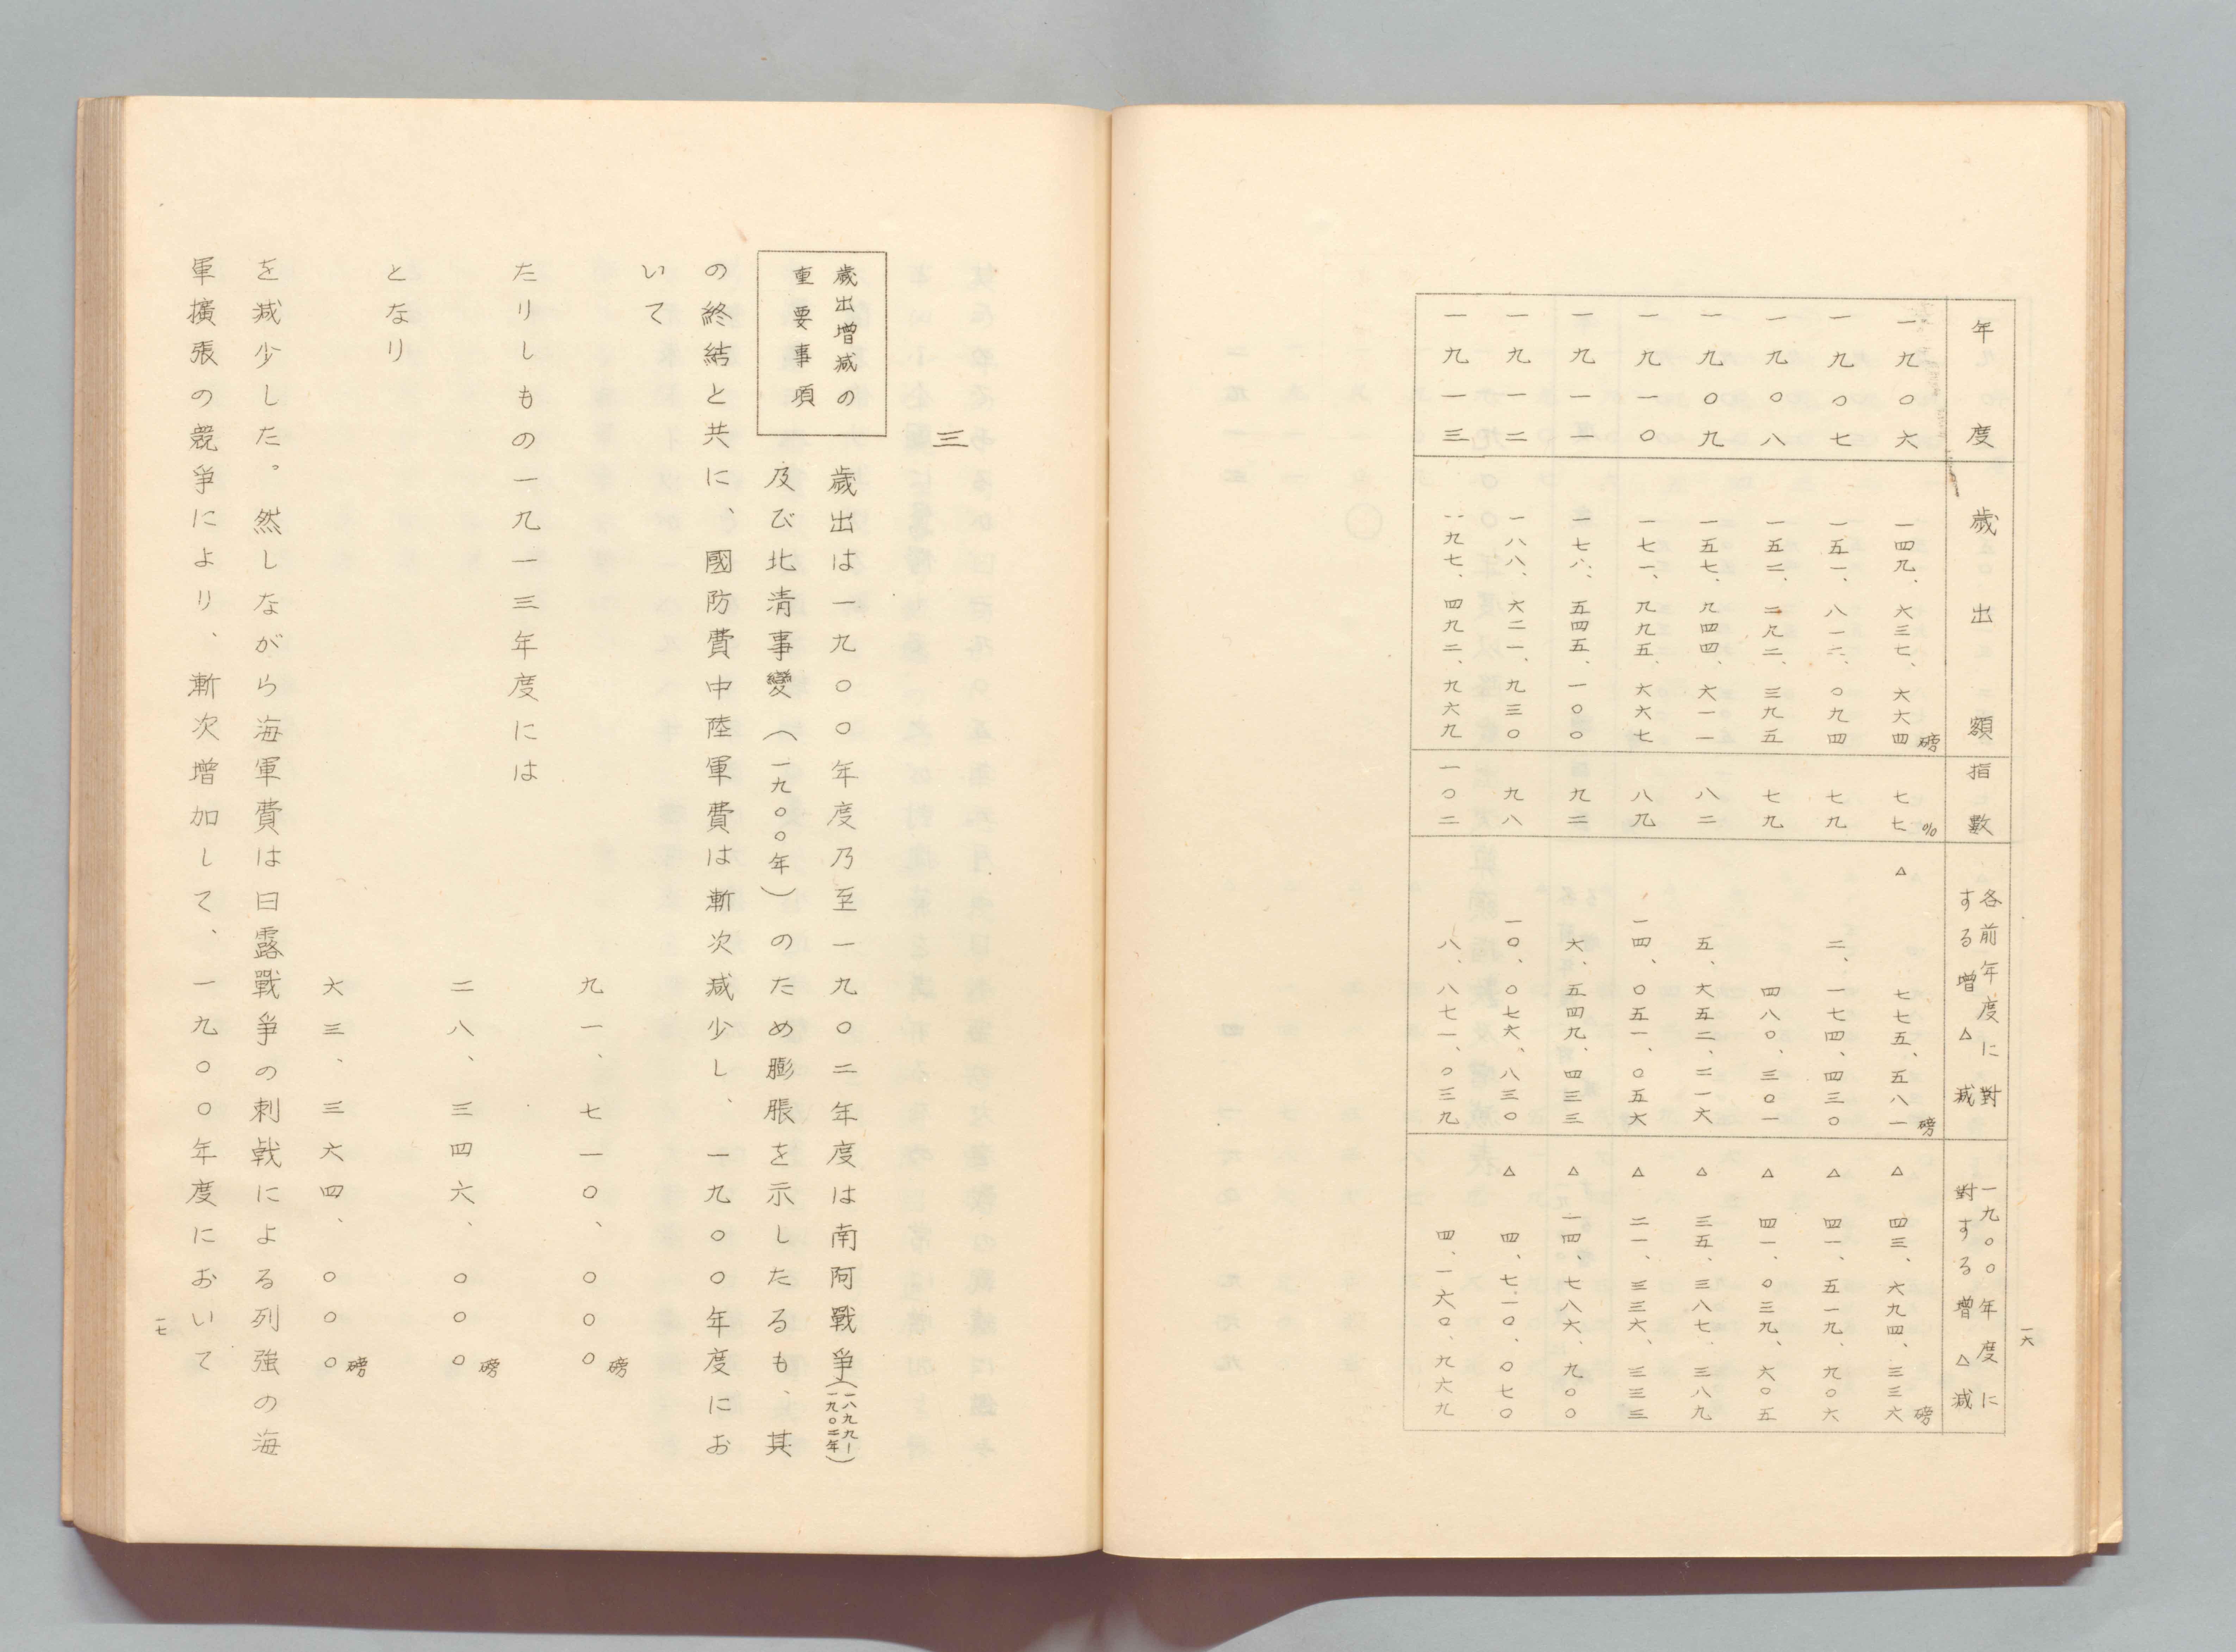 一六
年度 歳出額 指數 各前年度に對する増△減 一九〇〇年度に對する増△減
磅 % 磅 磅
一九〇六 一四九、六三七、六六四 七七 △ 七七五、五八一 △ 四三、六九四、三三六
一九〇七 一五一、八一二、〇九四 七九 二、一七四、四三〇 △ 四一、五一九、九〇六
一九〇八 一五二、二九二、三九五 七九 四八〇、三〇一 △ 四一、〇三九、六〇五
一九〇九 一五七、九四四、六一一 八二 五、六五二、二一六 △ 三五、三八七、三八九
一九一〇 一七一、九九五、六六七 八九 一四、〇五一、〇五六 △ 二一、三三六、三三三
一九一一 一七八、五四五、一〇〇 九二 六、五四九、四三三 △ 一四、七八六、九〇〇
一九一二 一八八、六二一、九三〇 九八 一〇、〇七六、八三〇 △ 四、七一〇、〇七〇
一九一三 一九七、四九二、九六九 一〇二 八、八七一、〇三九 四、一六〇、九六九
三
歳出増減の
重要事項
歳出は一九〇〇年度乃至一九〇二年度は南阿戰爭(一八九九ー一九〇二年)
及び北清事變(一九〇〇年)のため膨脹を示したるも、其
の終結と共に、國防費中陸軍費は漸次減少し、一九〇〇年度にお
いて
九一、七一〇、〇〇〇磅
たりしもの一九一三年度には
二八、三四六、〇〇〇磅
となり
六三、三六四、〇〇〇磅
を減少した。然しながら海軍費は日露戰爭の刺戟による列強の海
軍擴張の競爭により、漸次増加して、一九〇〇年度において
一七